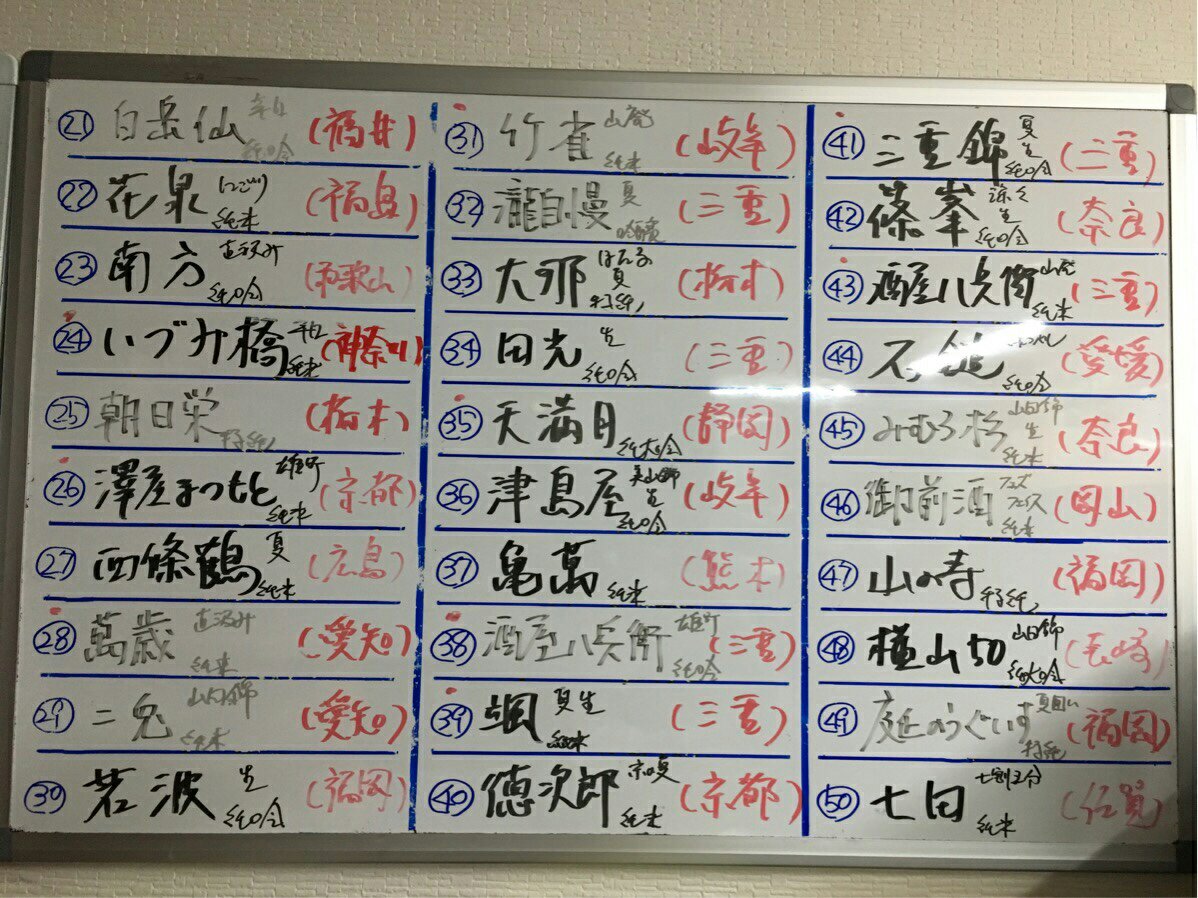 ㉑ 白岳仙 辛口 純吟 (福井)
㉒ 花泉 にごり 純米 (福島)
㉓ 南方 直汲み 純吟 (和歌山)
㉔ いづみ橋 辛口 純米 (神奈川)
㉕ 朝日栄 特純 (栃木)
㉖ 澤屋まつもと 雄町 純米 (京都)
㉗ 西條鶴 夏 純米 (広島)
㉘ 萬歳 直汲み 純米 (愛知)
㉙ 二兎 山田錦 純米 (愛知)
㉚ 若波 生 純吟 (福岡)
㉛ 竹雀 山廃 純米 (岐阜)
㉜ 瀧自慢 夏 吟醸 (三重)
㉝ 大那 夏 特純 (栃木)
㉞ 田光 生 純吟 (三重)
㉟ 天満月 純大吟 (静岡)
㊱ 津島屋 美山錦 生 純吟 (岐阜)
㊲ 亀萬 純米 (熊本)
㊳ 酒屋八兵衛 雄町 純吟 (三重)
㊴ 颯 夏生 純米 (三重)
㊵ 徳次郎 京の夏 純米 (京都)
㊶ 三重錦 夏 生 純吟 (三重)
㊷ 篠峯 涼々 生 純吟 (奈良)
㊸ 酒屋八兵衛 山廃 純米 (三重)
㊹ 純吟 (愛媛)
㊺ みむろ杉 山田錦 生 純米 (奈良)
㊻ 御前酒 フェイス 純米 (岡山)
㊼ 山の寿 特純 (福岡)
㊽ 横山50 山田錦 純大吟 (長崎)
㊾ 庭のうぐいす 夏囲い 特純 (福岡)
㊿ 七田 七割五分 純米 (佐賀)